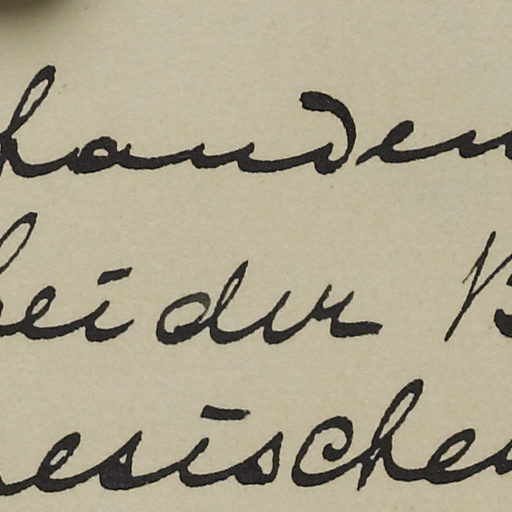 handen
bei der B
nesischen